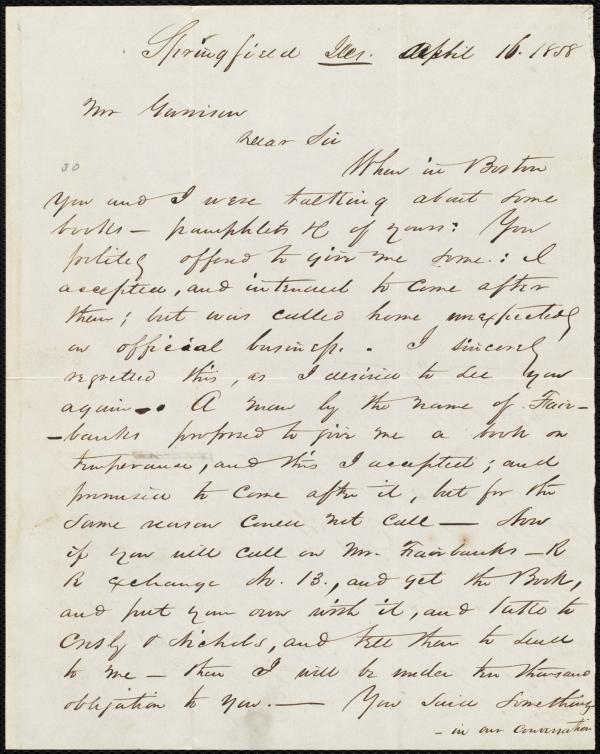 Springfield Ills. April 16. 1858
Mr Garrison
Dear Sir
30
When in Boston
you and I were talking about some
books — pamphlets &c of yours: You
politely offered to give me some: I
accepted, and intended to come after
them; but was called home unexpectedly
on official business. I sincerely
regretted this, as I desired to see you
again. A man by the name of Fair-
-banks proposed to give me a book on
temperance, and this I accepted; and
promised to come after it, but for the
same reason could not call — Now
if you will call on Mr. Fairbanks — R
R Exchange No. 13., and get the Book,
and put your own with it, and take to
Crosby & Nichols, and tell them to send
to me — then I will be under ten thousand
obligation to you. — You said something
- in our conversation